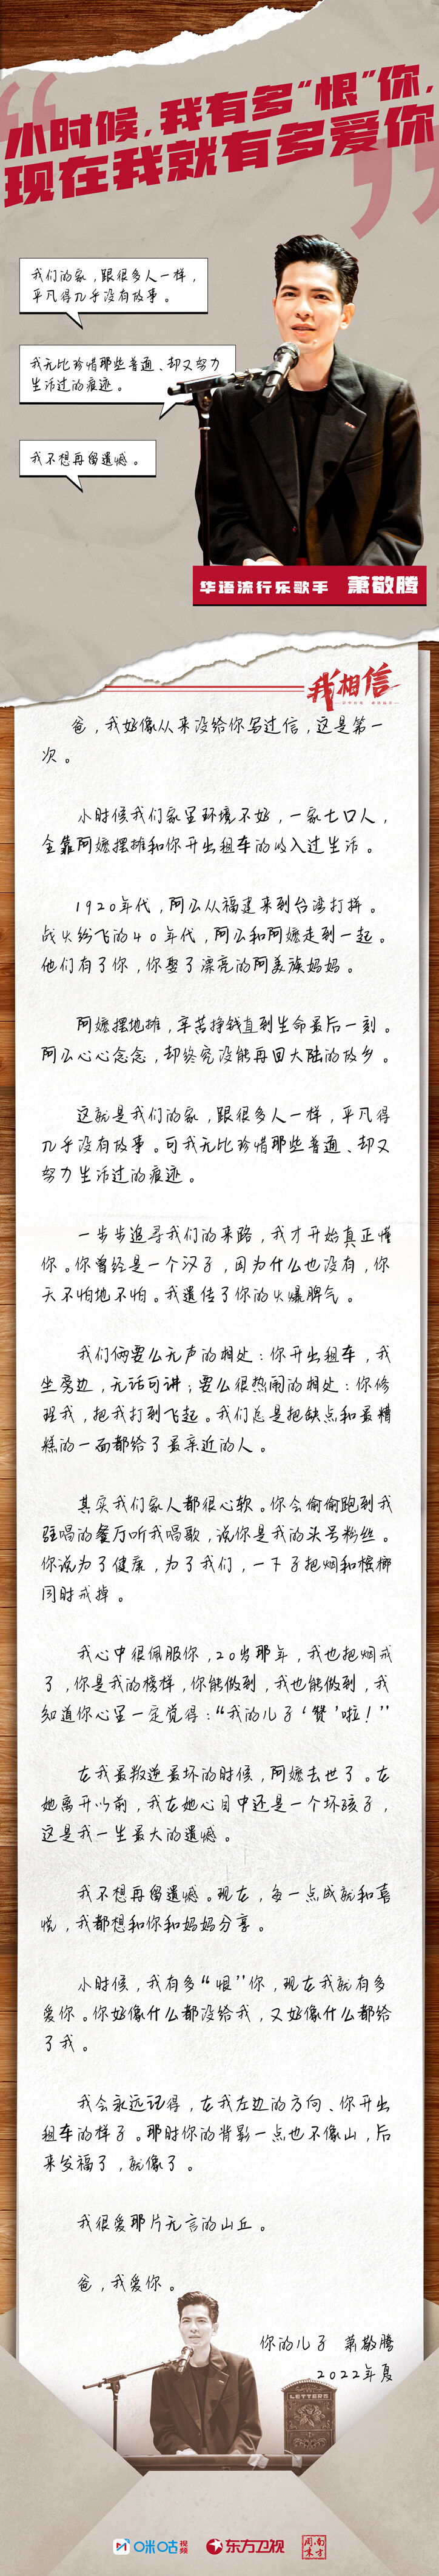 小时候,我有多“恨”你,
现在我就有多爱你
我们的家,跟很多人一样,
平凡得几乎没有故事。
我无比珍惜那些普通、却又努力
生活过的痕迹。
我不想再留遗憾。
华语流行乐歌手 萧敬腾
我相信
爸,我好像从来没给你写过信,这是第一
次。
小时候我们家里环境不好,一家七口人,
全靠阿嬷摆摊和你开出租车的收入过生活。
1920年代,阿公从福建来到台湾打拼。
战火纷飞的40年代,阿公和阿嬷走到一起。
他们有了你,你娶了漂亮的阿美族妈妈。
阿嬷摆地摊,辛苦挣钱直到生命最后一刻。
阿公心心念念,却终究没能再回大陆的故乡。
这就是我们的家,跟很多人一样,平凡得
几乎没有故事。可我无比珍惜那些普通、却又
努力生活过的痕迹。
一步步追寻我们的来路,我才开始真正懂
你。你曾经是一个汉子,因为什么也没有,你
天不怕地不怕。我遗传了你的火爆脾气。
我们俩要么无声的相处:你开出租车,我
坐旁边,无话可讲;要么很热闹的相处:你修
理我,把我打到飞起。我们总是把缺点和最糟
糕的一面都给了最亲近的人。
其实我们家人都很心软。你会偷偷跑到我
驻唱的餐厅听我唱歌,说你是我的头号粉丝。
你说为了健康,为了我们,一下子把烟和槟榔
同时戒掉。
我心中很佩服你,20岁那年,我也把烟戒
了,你是我的榜样,你能做到,我也能做到,我
知道你心里一定觉得:“我的儿子‘赞’啦!”
在我最叛逆最坏的时候,阿嬷去世了。在
她离开以前,我在她心目中还是一个坏孩子,
这是我一生最大的遗憾。
我不想再留遗憾。现在,每一点成就和喜
悦,我都想和你和妈妈分享。
小时候,我有多“恨”你,现在我就有多
爱你。你好像什么都没给我,又好像什么都给
了我。
我会永远记得,在我左边的方向、你开出
租车的样子。那时你的背影一点也不像山,后
来发福了,就像了。
我很爱那片无言的山丘。
爸,我爱你。
你的儿子 萧敬腾
2022年夏
LETTERS
咪咕视频 东方卫视 南方周末